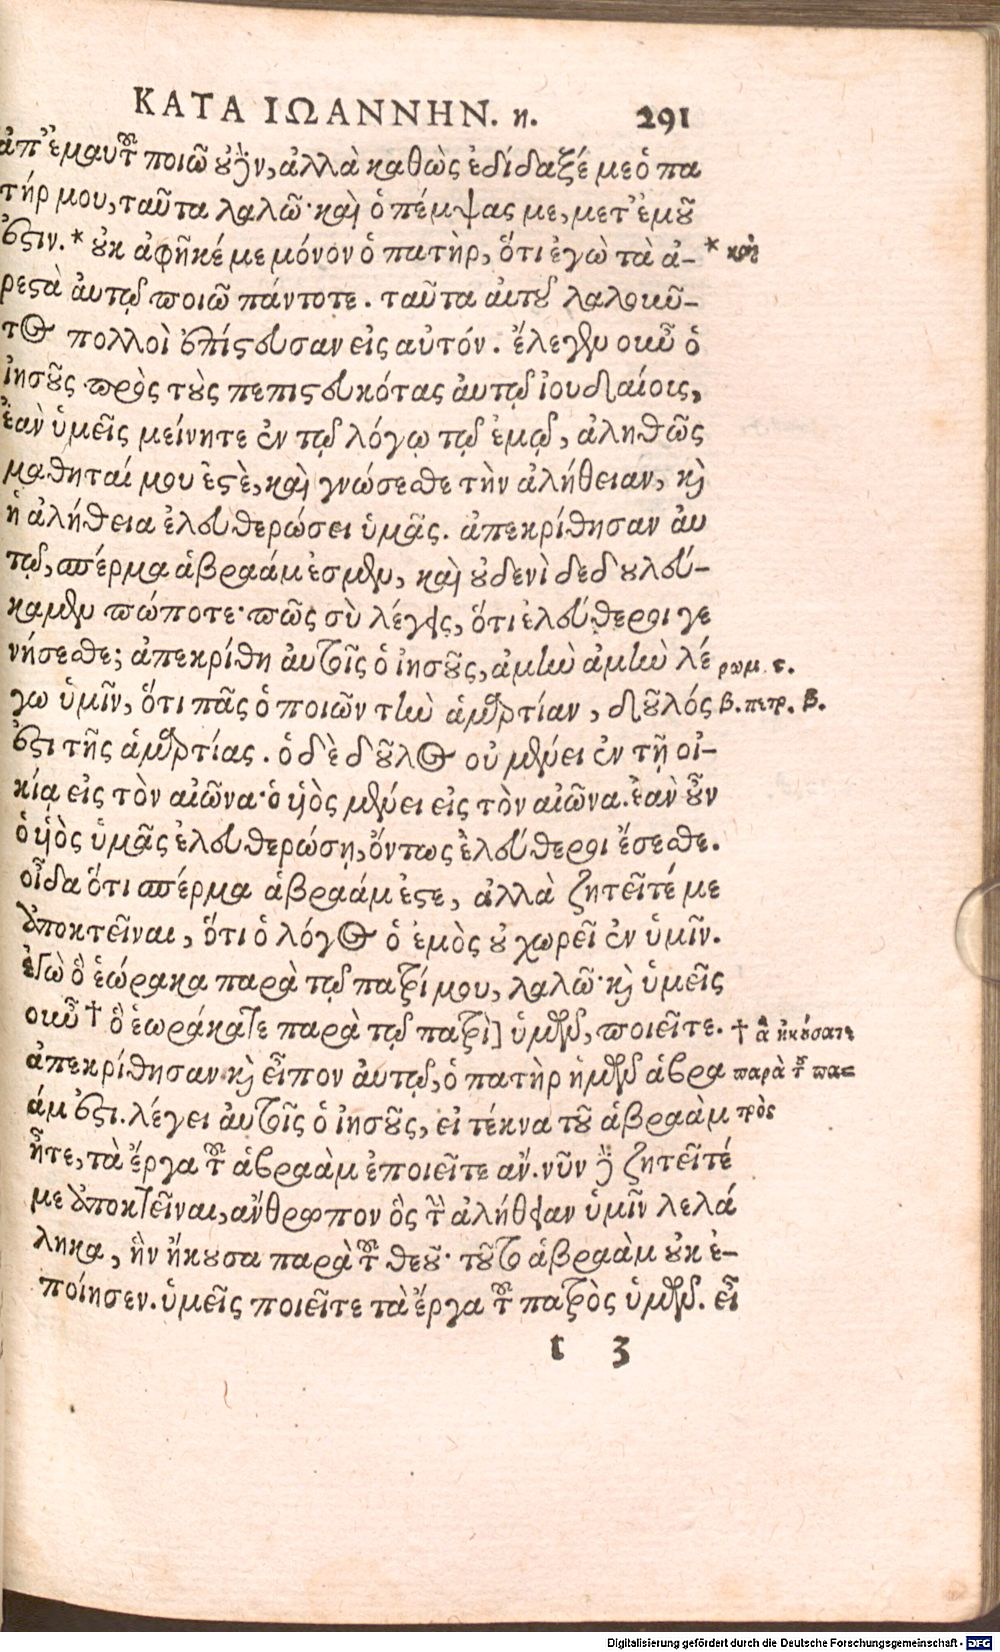 ΚΑΤΑ ΙΩΑΝΝΗΝ. η. 291
ἀπ' ἐμαυτοῦ ποιῶ οὐδὲν, ἀλλὰ καθὼς ἐδίδαξέ με ὁ πα
τήρ μου, ταῦτα λαλῶ· καὶ ὁ πέμψας με, μετ' ἐμοῦ
ἐστιν. * οὐκ ἀφῆκέ με μόνον ὁ πατὴρ, ὅτι ἐγὼ τὰ ἀ- * καὶ
ρεστὰ ἀυτῷ ποιῶ πάντοτε. ταῦτα ἀυτοῦ λαλοιῦ-
τος πολλοὶ ἐπίστευσαν εἰς αὐτόν. ἔλεγεν οιυῦ ὁ
ἰησοῦς πρὸς τοὺς πεπιστευκότας ἀυτῷ ἰουδαίοις,
ἐαν ὑμεῖς μείνητε ἐν τῷ λόγῳ τῷ ἐμῷ, ἀληθῶς
μαθηταί μου ἐστὲ, καὶ γνώσεσθε τὴν ἀλήθειαν, κὶ
ἡ ἀλήθεια ἐλευθερώσει ὑμᾶς. ἀπεκρίθησαν ἀυ
τῷ, σπέρμα ἀβραάμ ἐσμεν, καὶ οὐδενὶ δεδουλεύ-
καμεν πώποτε· πῶς σὺ λέγεις, ὅτι ἐλεύθεροι γε
νήσεσθε; ἀπεκρίθη ἀυτοῖς ὁ ἰησοῦς, ἀμὴν ἀμὴν λέ ρωμ. ϛ.
γω ὑμῖν, ὅτι πᾶς ὁ ποιῶν τὴν ἁμαρτίαν, δοῦλός β. πετρ. β.
ἐστι τῆς ἁμαρτίας. ὁ δὲ δοῦλος οὐ μένει ἐν τῇ οἰ-
κίᾳ εἰς τὸν αἰῶνα· ὁ υἱὸς μένει εἰς τὸν αἰῶνα. ἐὰν οὖν
ὁ υἱὸς ὑμᾶς ἐλευθερώσῃ, ὄντως ἐλεύθεροι ἔσεσθε.
οἶδα ὅτι σπέρμα ἀβραάμ ἐστε, ἀλλὰ ζητεῖτέ με
ἀποκτεῖναι, ὅτι ὁ λόγος ὁ ἐμὸς οὐ χωρεῖ ἐν ὑμῖν.
ἐγὼ ὃ ἑώρακα παρὰ τῷ πατρί μου, λαλῶ· κὶ ὑμεῖς
οιυῦ † ὃ ἑωράκατε παρὰ τῷ πατρὶ] ὑμῶν, ποιεῖτε. † ἃ ἠκούσατε
ἀπεκρίθησαν κὶ εἶπον ἀυτῷ, ὁ πατὴρ ἡμῶν ἀβρα παρὰ τοῦ πα=
άμ ἐστι. λέγει ἀυτοῖς ὁ ἰησοῦς, εἰ τέκνα τοῦ ἀβραὰμ τρὸς
ἦτε, τὰ ἔργα τοῦ ἀβραὰμ ἐποιεῖτε ἀν. νῦν δὲ ζητεῖτέ
με ἀποκτεῖναι, ἄνθρωπον ὃς τὴν ἀλήθειαν ὑμῖν λελά
ληκα, ἣν ἤκουσα παρὰ τοῦ θεοῦ· τοῦτο ἀβραὰμ οὐκ ἐ-
ποίησεν. ὑμεῖς ποιεῖτε τὰ ἔργα τοῦ πατρὸς ὑμῶν. εἶ
t 3
Digitalisierung gefördert durch die Deutsche Forschungsgemeinschaft - DFG